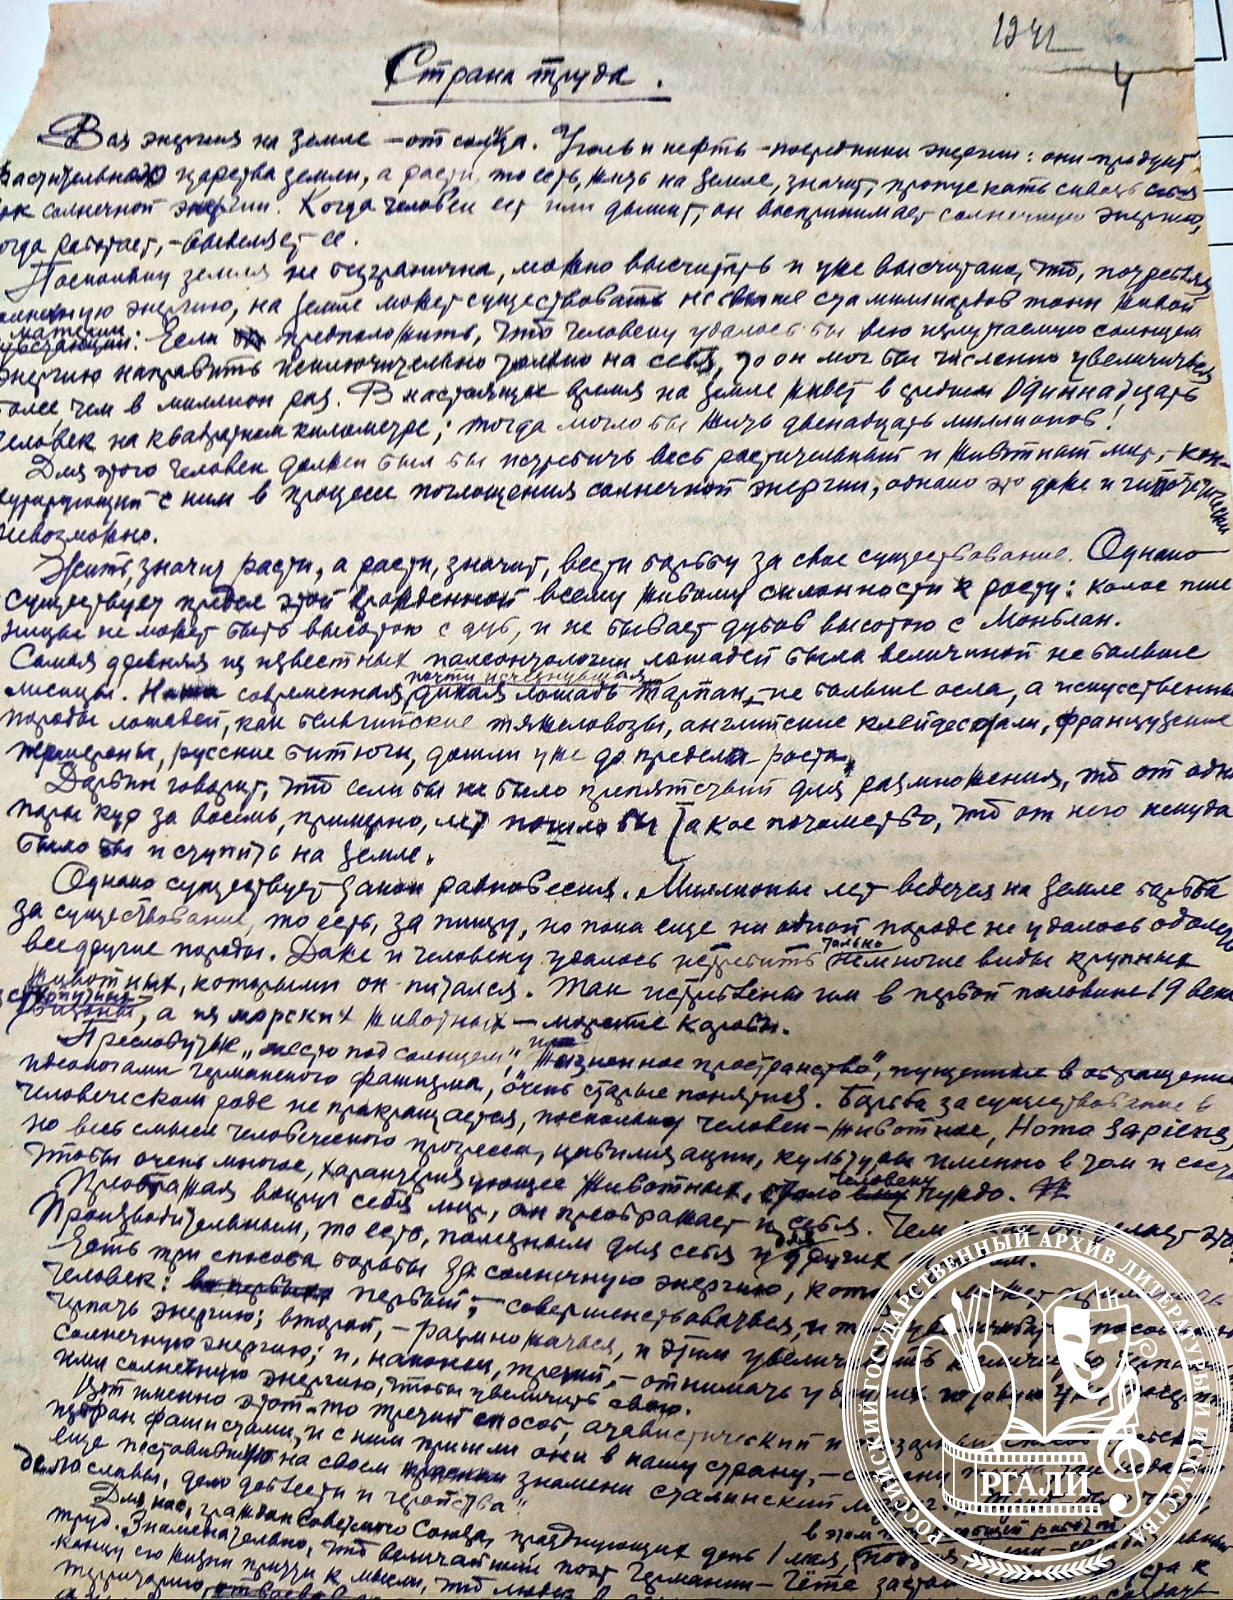 1942
4
Страна труда.
Вся энергия на земле – от солнца. Уголь и нефть – посредники энергии: они – продукт
растительного царства земли, а расти, то есть, жить на земле, значит, пропускать сквозь себя
ток солнечной энергии. Когда человек ест или дышит, он воспринимает солнечную энергию,
когда работает, – выделяет ее.
Поскольку земля не безгранична, можно высчитать и уже высчитано, что, потребляя
солнечную энергию, на земле может существовать не свыше ста миллиардов тонн живой
материи
субстанции: Если предположить, что человеку удалось бы всю излучаемую солнцем
энергию направить исключительно только на себя, то он мог бы численно увеличиться
более, чем в миллион раз. В настоящее время на земле живет в среднем одиннадцать
человек на квадратном километре; тогда могло бы жить двенадцать миллионов!
Для этого человек должен был бы истребить весь растительный и животный мир, – кон-
курирующий с ним в процессе поглощения солнечной энергии, однако это даже и гипотетически
невозможно.
Жить, значит расти, а расти, значит, вести борьбу за свое существование. Однако
существует предел этой врожденной всему живому склонности к росту: колос пше
ницы не может быть высотою с дуб, и не бывает дубов высотою с Монблан.
Самая древняя из известных палеонтологии лошадей была величиной не больше
почти исчезнувшая
лисицы. Наша современная, дикая лошадь тарпан, – не больше осла, а искусственные
породы лошадей, как бельгийские тяжеловозы, английские клейдесдали, французские
першероны, русские битюги, дошли уже до предела роста.
Дарвин говорит, что если бы не было препятствий для размножения, то от одной
пары кур за восемь, примерно, лет пошло бы такое потомство, что от него некуда
было бы и ступить на земле.
Однако существует закон равновесия. Миллионы лет ведется на земле борьба
за существование, то есть, за пищу, но пока еще ни одной породе не удалось одолеть
только
все другие породы. Даже и человеку удалось истребить немногие виды крупных
животных, которыми он питался. Так истреблены им в первой половине 19 века
бизоны, а из морских животных – морские коровы.
Пресловутые „место под солнцем", „жизненное пространство", пущенные в обращение
идеологами германского фашизма, очень старые понятия. Борьба за существование в
человеческом роде не прекращается, поскольку человек – животное, Homo sapiens,
но весь смысл человеческого прогресса, цивилизации, культуры именно в том и состоит
человеку
чтобы очень многое, характеризующее животных, стало ему чуждо.
Преображая вокруг себя мир, он преображает и себя. Чем
для
Производительным, то есть, полезным для себя и других
Есть три способа борьбы за солнечную энергию,
человек: первый, – совершенствоваться, и
черпать энергию; второй, – размножаться, и этим увеличивать количество
солнечную энергию; и, наконец, третий, – отнимать у
ими солнечную энергию, чтобы увеличить свою.
Вот именно этот-то третий способ, атавистический и
избран фашистами, и с ним пришли они в нашу страну, –
еще поставившую на своем знамени сталинский
дело славы, дело доблести и геройства".
Для нас, граждан Советского Союза, празднующих день 1 мая,
труд. Знаменательно, что величайший поэт Германии – Гёте
концу его жизни придти к мысли, что
территорию,
РОССИЙСКИЙ ГОСУДАРСТВЕННЫЙ АРХИВ ЛИТЕРАТУРЫ И ИСКУССТВА
РГАЛИ